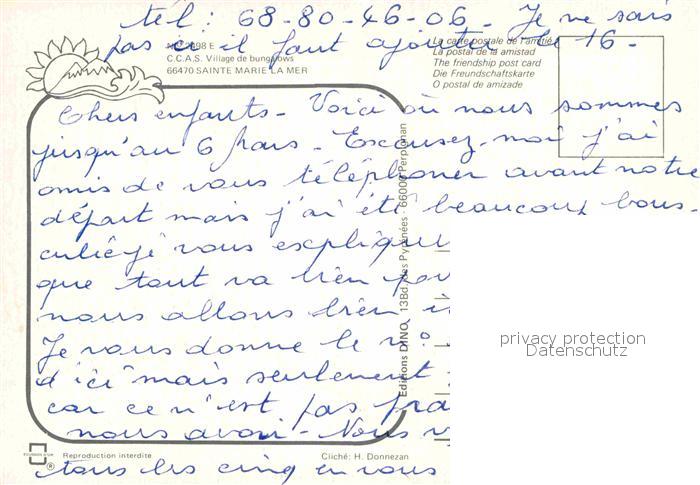 tél : 68-80-46-06 - Je ne sais
pas il faut ajouter le 16 -
2898 E
C.C.A.S. Village de bungalows
66470 SAINTE MARIE LA MER
La carte postale de l'amitié
La postal de la amistad
The friendship post card
Die Freundschaftskarte
O postal de amizade
Chers enfants - Voici où nous sommes
jusqu'au 6 hars - Escusez-moi j'ai
omis de vous téléphoner avant notre
départ mais j'ai été beaucoup bous-
culée je vous expliquer
que tout va bien pou
nous allons bien
Je vous donne le n°
d'ici mais seulement
car ce n'est pas pra
nous avoir - Nous v
tous les cinq en vous
Editions DINO, 13Bd. des Pyrénées - 66000 Perpignan
privacy protection
Datenschutz
Reproduction interdite
Cliché: H. Donnezan
®